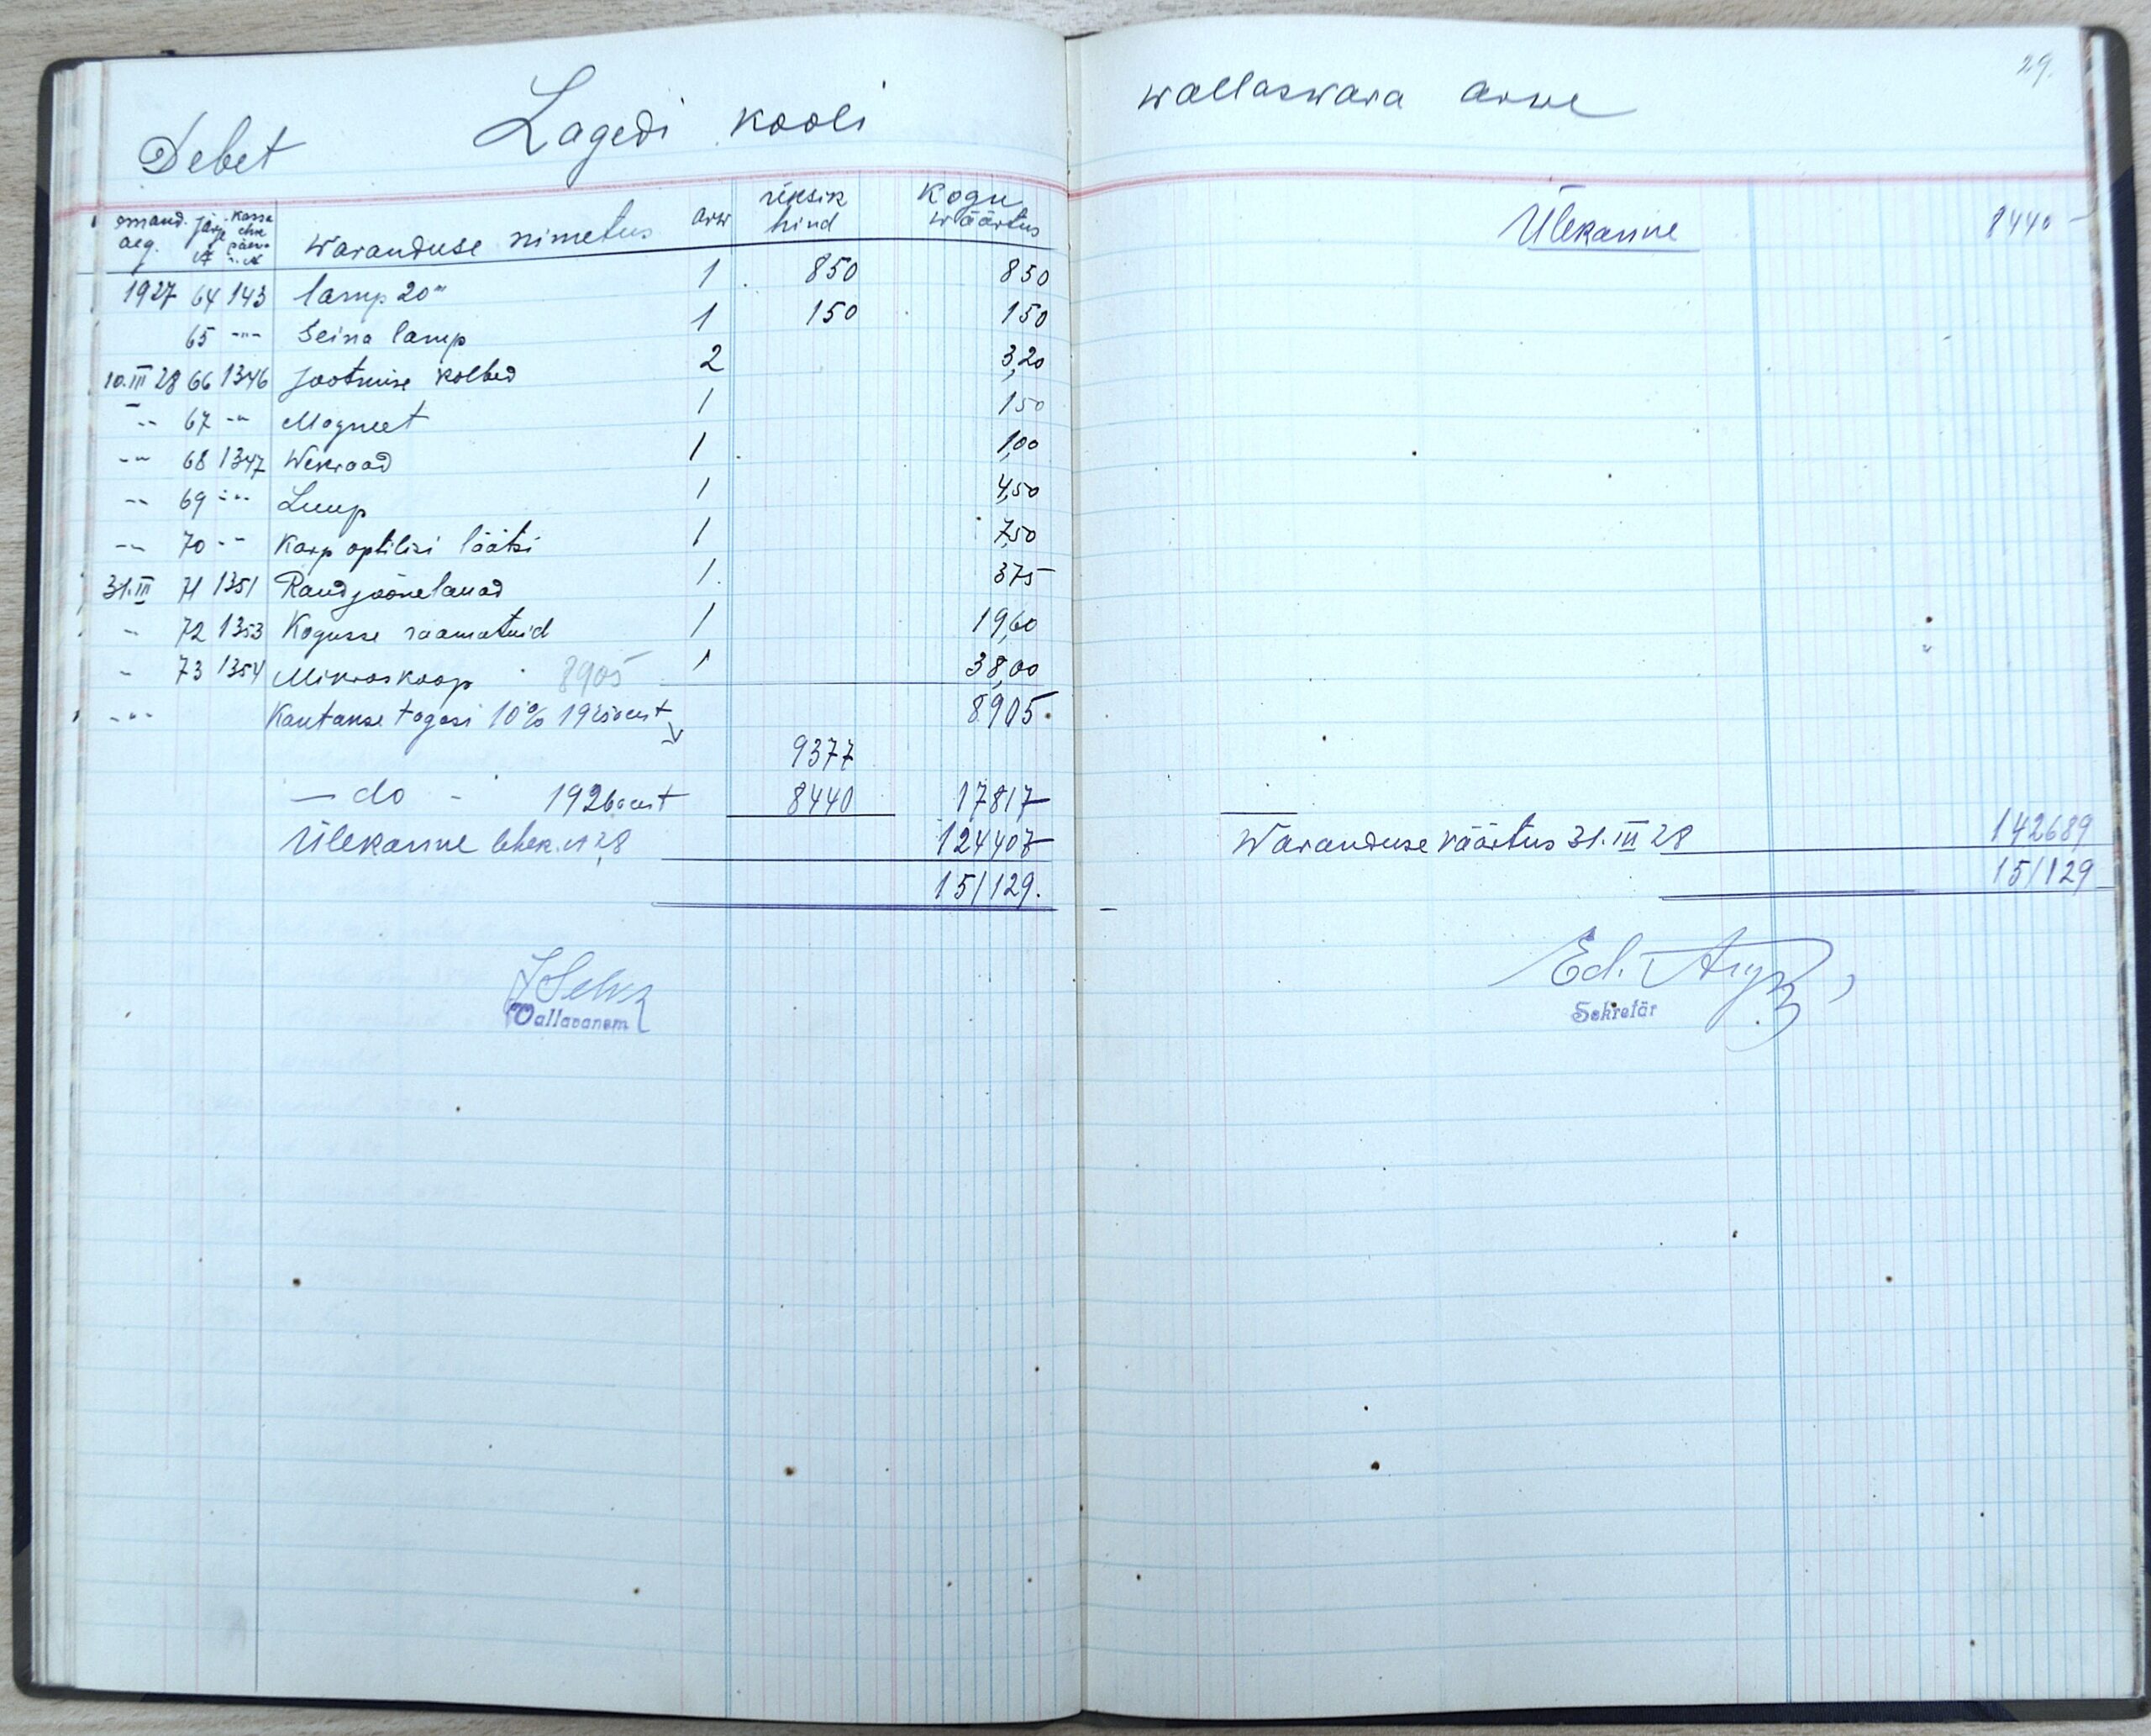 29.
Debet Lagedi kooli wallaswara arwe
omand. aeg. järje № kassa ehk päewa № Waranduse nimetus arw üksik hind Kogu wäärtus
1927 64 143 lamp 20''' 1 850 850
65 -"- Seina lamp 1 150 150
10.III 28 66 1346 Jootmise kolbed 2 3,20
-"- 67 -"- Magneet 1 150
-"- 68 1347 1 1,00
-"- 69 -"- Luup 1 4,50
-"- 70 -"- Karp optilisi läätsi 1 7,50
31.III 71 1351 1 375
" 72 1353 Kogusse raamatuid 1 19,60
" 73 1354 Mikroskoop 8905 1 38,00
-"- Kantakse tagasi 10% 1925 aast 8905.
9377
— do - 1926 aast 8440 17817
Ülekanne lehek. № 28 124407
151129.
Vallavanem
Ülekanne 8440 -
Waranduse väärtus 31.III 28 142689
151129
Ed.
Sekretär